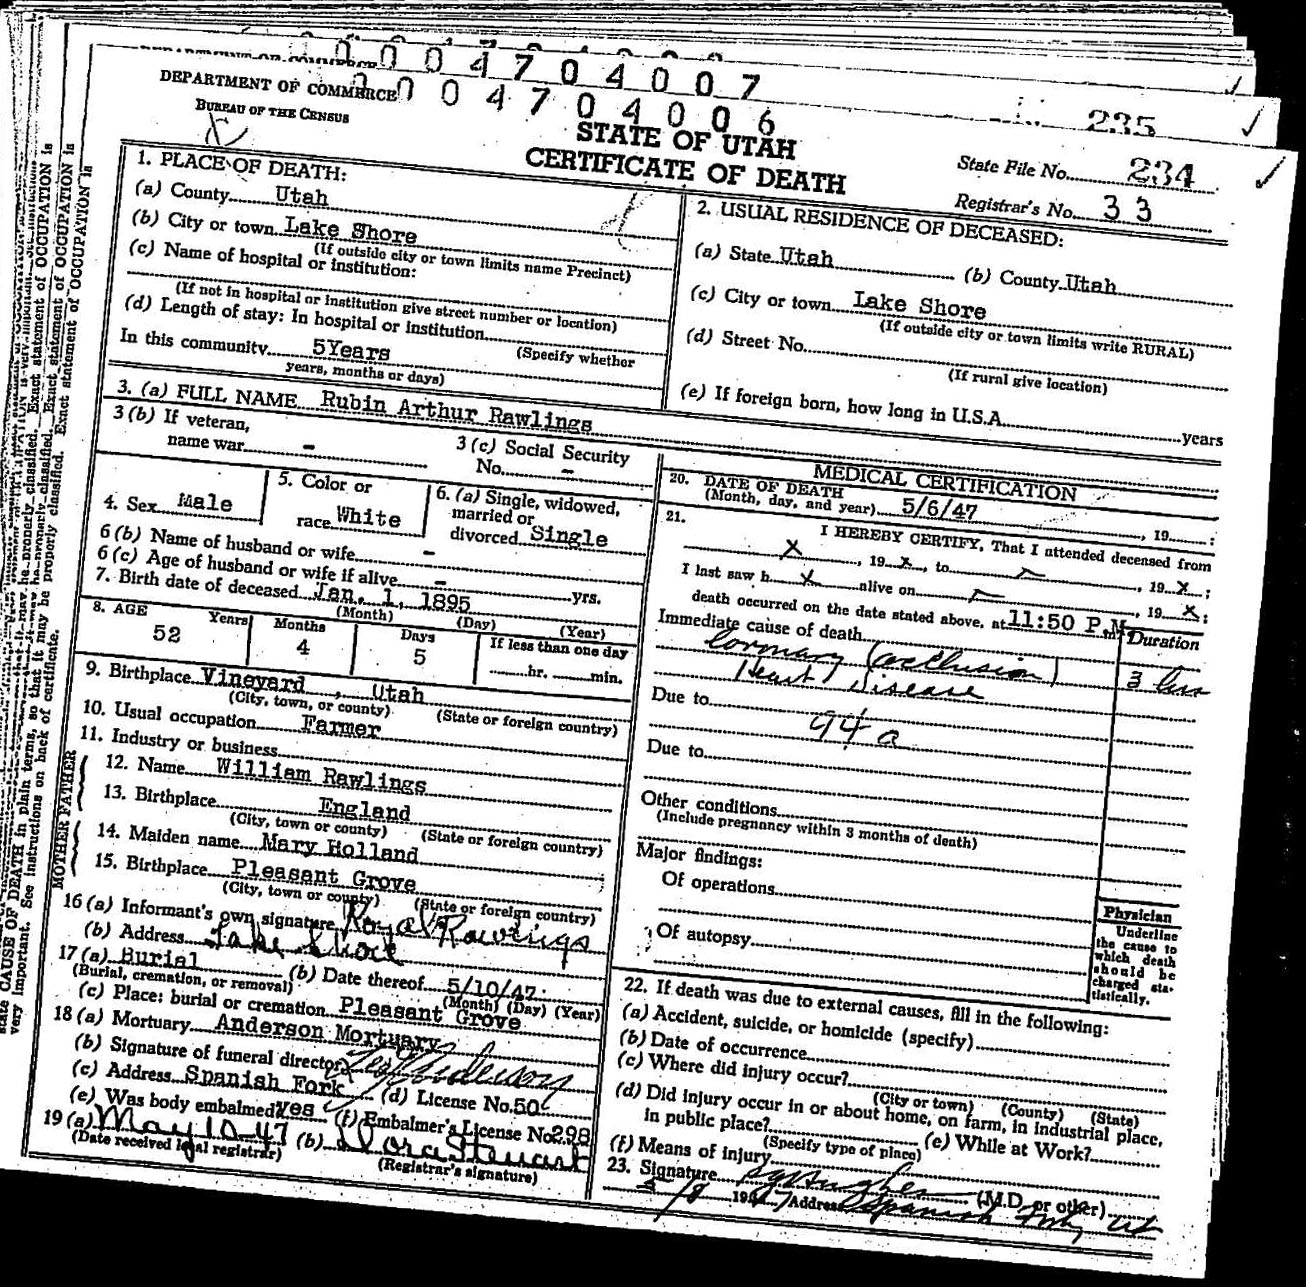 0 0 4 7 0 4 0 0 7
DEPARTMENT OF COMMERCE
0 0 4 7 0 4 0 0 6
BUREAU OF THE CENSUS
235
STATE OF UTAH
CERTIFICATE OF DEATH
State File No. 234
Registrar's No. 33
1. PLACE OF DEATH:
(a) County Utah
(b) City or town Lake Shore
(If outside city or town limits name Precinct)
(c) Name of hospital or institution:
(If not in hospital or institution give street number or location)
(d) Length of stay: In hospital or institution
(Specify whether
In this community 5Years
years, months or days)
2. USUAL RESIDENCE OF DECEASED:
(a) State Utah (b) County Utah
(c) City or town Lake Shore
(If outside city or town limits write RURAL)
(d) Street No.
(If rural give location)
(e) If foreign born, how long in U.S.A. years
3. (a) FULL NAME Rubin Arthur Rawlings
3 (b) If veteran,
name war -
3 (c) Social Security
No. -
4. Sex Male
5. Color or
race White
6. (a) Single, widowed,
married or
divorced Single
6 (b) Name of husband or wife -
6 (c) Age of husband or wife if alive - yrs.
7. Birth date of deceased Jan. 1, 1895
(Month) (Day) (Year)
8. AGE Years Months Days If less than one day
52 4 5 hr. min.
9. Birthplace Vineyard , Utah
(City, town, or county) (State or foreign country)
10. Usual occupation Farmer
11. Industry or business
FATHER
12. Name William Rawlings
13. Birthplace England
(City, town or county) (State or foreign country)
MOTHER
14. Maiden name Mary Holland
15. Birthplace Pleasant Grove
(City, town or county) (State or foreign country)
16 (a) Informant's own signature Royal Rawlings
(b) Address Lake Shore
17 (a) Burial (b) Date thereof 5/10/47
(Burial, cremation, or removal) (Month) (Day) (Year)
(c) Place: burial or cremation Pleasant Grove
18 (a) Mortuary Anderson Mortuary
(b) Signature of funeral director Anderson
(c) Address Spanish Fork (d) License No. 50
(e) Was body embalmed Yes (f) Embalmer's License No. 298
19 (a) May 10-47 (b) Dora Stewart
(Date received legal registrar) (Registrar's signature)
MEDICAL CERTIFICATION
20. DATE OF DEATH
(Month, day, and year) 5/6/47 , 19 ;
21. I HEREBY CERTIFY, That I attended deceased from
X , 19 x, to , 19 x ;
I last saw h x alive on , 19 x ;
death occurred on the date stated above, at 11:50 P.M.
Immediate cause of death Duration
Coronary (occlusion) 3 hrs
Heart Disease
Due to
94 a
Due to
Other conditions
(Include pregnancy within 3 months of death)
Major findings:
Of operations
Of autopsy
Physician
Underline
the cause to
which death
should be
charged sta-
tistically.
22. If death was due to external causes, fill in the following:
(a) Accident, suicide, or homicide (specify)
(b) Date of occurrence
(c) Where did injury occur?
(City or town) (County) (State)
(d) Did injury occur in or about home, on farm, in industrial place,
in public place? (e) While at Work?
(Specify type of place)
(f) Means of injury
23. Signature Hughes (M.D. or other)
5/8 1947 Address Spanish Fork, Ut
state CAUSE OF DEATH in plain terms, so that it may be properly classified. Exact statement of OCCUPATION is
very important. See instructions on back of certificate.